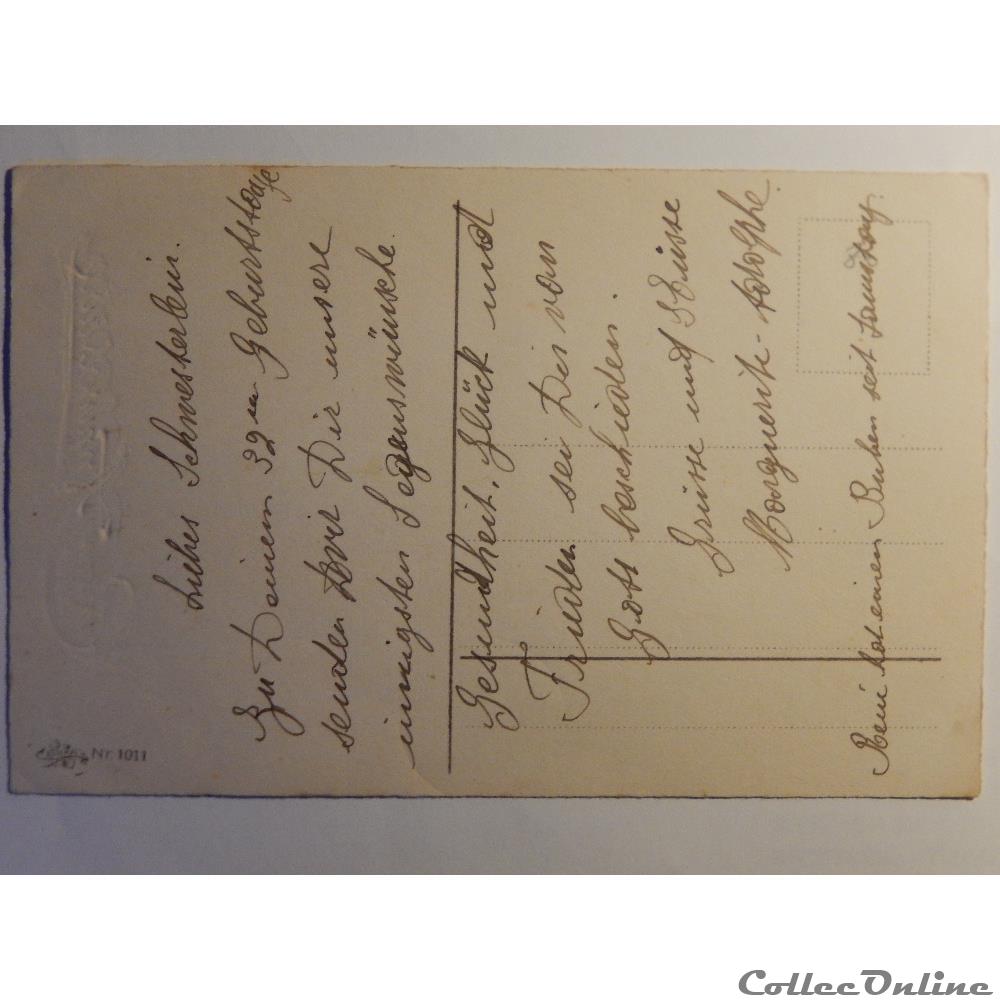 Liebes Schwesterlein.
Zu Deinem 32ⁿ Geburtstage
senden wir Dir unsere
innigsten Segenswünsche.
Gesundheit, Glück und
Frieden sei Dir von
Gott beschieden.
Grüsse und Küsse
Marguerite - Adolphe
René hat einen Buben seit Samstag.
Nr. 1011
CollecOnline